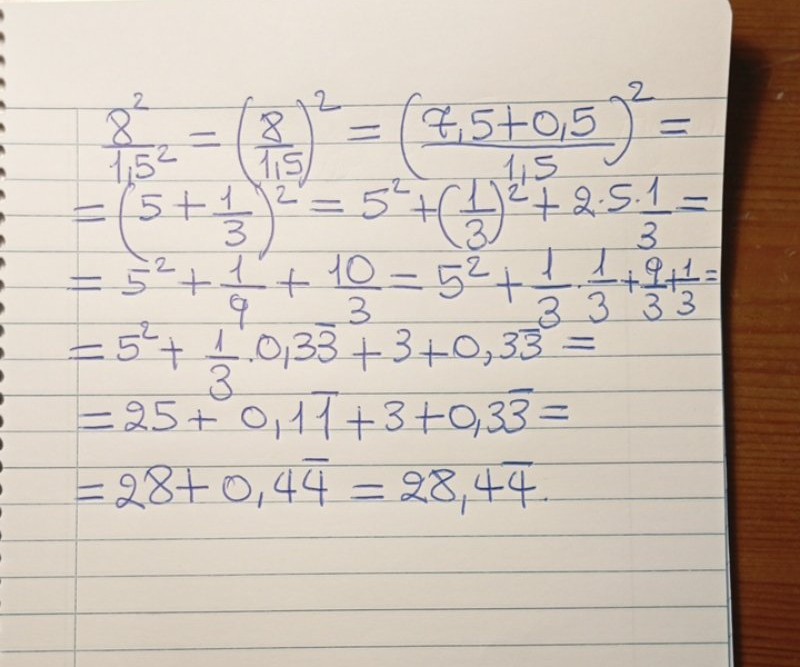 8²/1,5² = (8/1,5)² = ((7,5+0,5)/1,5)² =
= (5 + 1/3)² = 5² + (1/3)² + 2·5·1/3 =
= 5² + 1/9 + 10/3 = 5² + 1/3 · 1/3 + 9/3 + 1/3 =
= 5² + 1/3 · 0,33̅ + 3 + 0,33̅ =
= 25 + 0,11̅ + 3 + 0,33̅ =
= 28 + 0,44̅ = 28,44̅.